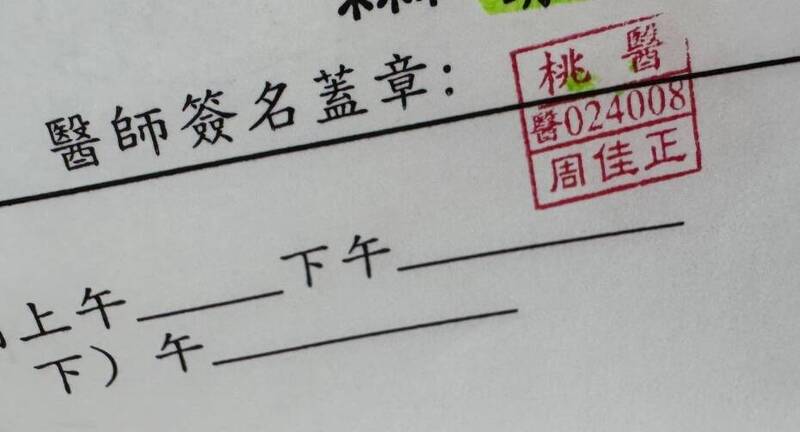 醫師簽名蓋章：
桃醫
醫024008
周佳正
上午______下午__________
下）午______________